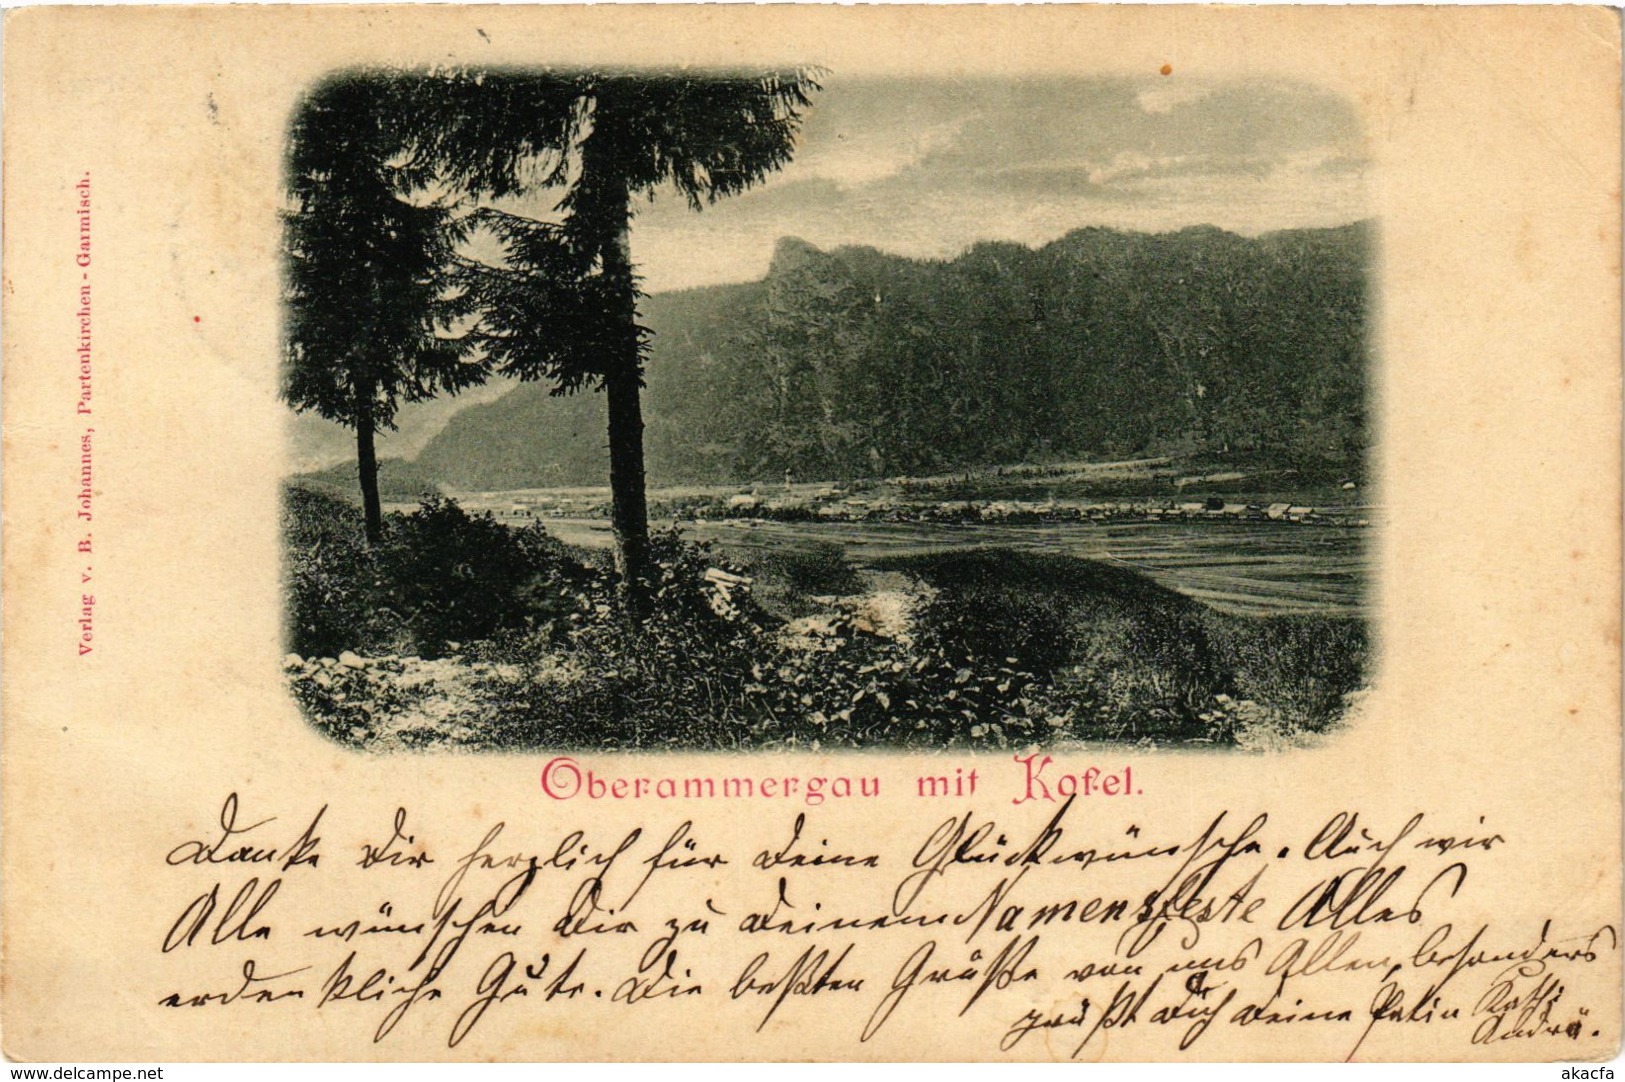 Verlag v. B. Johannes, Partenkirchen-Garmisch.
Oberammergau mit Kofel.
Danke Dir herzlich für Deine Glückwünsche. Auch wir
Alle wünschen Dir zu Deinem Namensfeste Alles
erdenkliche Gute. Die besten Grüße von uns Allen, besonders
grüßt Dich Deine Patin Kathi
akpool.de